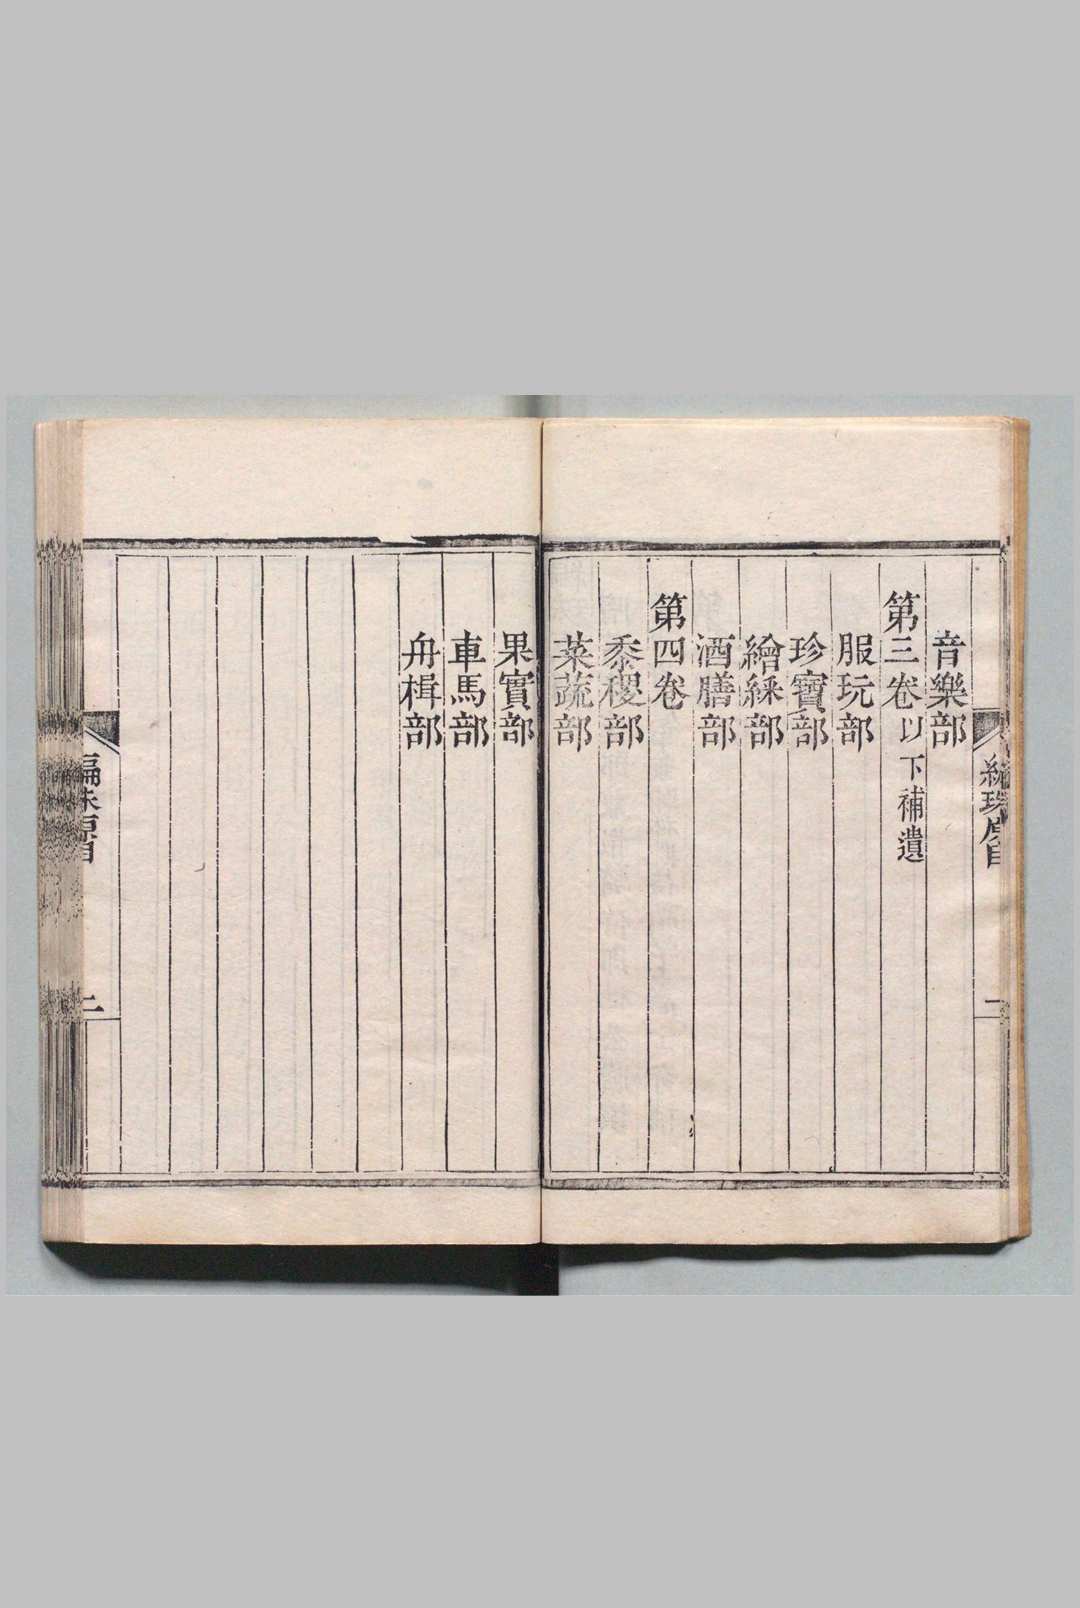 音樂部
第三卷以下補遺
服玩部
珍寶部
繒綵部
酒膳部
第四卷
黍稷部
菜蔬部
果實部
車馬部
舟楫部
編珠原目
二